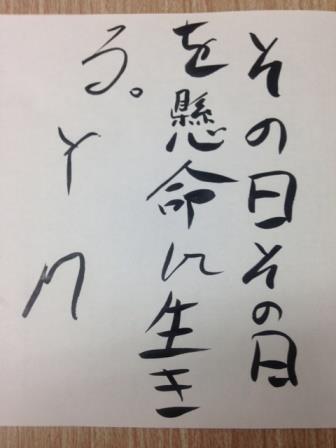 その日その日
を懸命に生き
る。
Y M